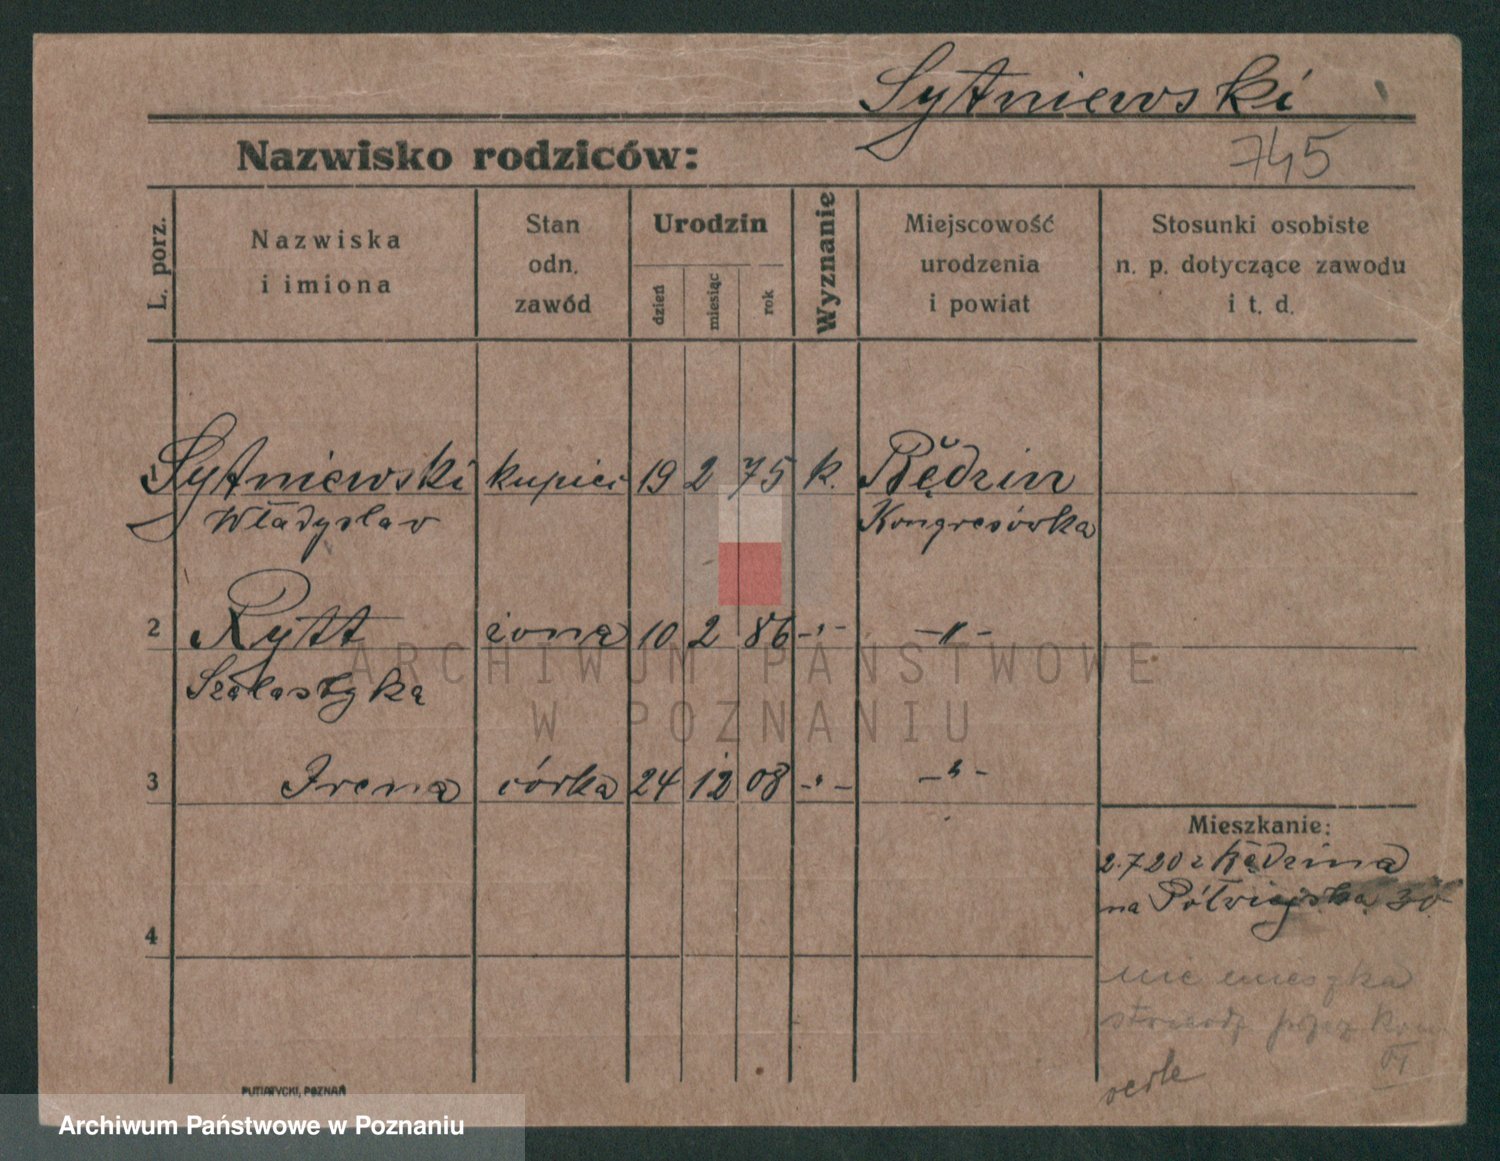 Sytniewski
745
Nazwisko rodziców:
L. porz.
Nazwiska
i imiona
Stan
odn.
zawód
Urodzin
dzień
miesiąc
rok
Wyznanie
Miejscowość
urodzenia
i powiat
Stosunki osobiste
n. p. dotyczące zawodu
i t. d.
1 Sytniewski kupiec 19 2 75 k. Będzin
Władysław Kongresówka
2 Rytt żona 10 2 86 -"- -"-
3 Irena córka 24 12 08 -"- -"-
Mieszkanie:
2.7.20 z Będzina
na Półwiejska 30
4
nie mieszka
VI
PUTIATYCKI, POZNAŃ
ARCHIWUM PAŃSTWOWE
W POZNANIU
Archiwum Państwowe w Poznaniu